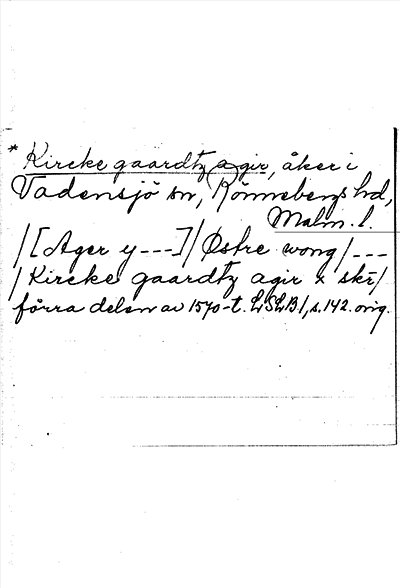 * Kircke gaardtz agir, åker i
Vadensjö sn, Rönnebergs hd,
Malm. l.
/[Ager y ---]/ Østre wong/ ---
/Kircke gaardtz agir x skr̄/
förra delen av 1570-t. LSLB1, s. 142. orig.